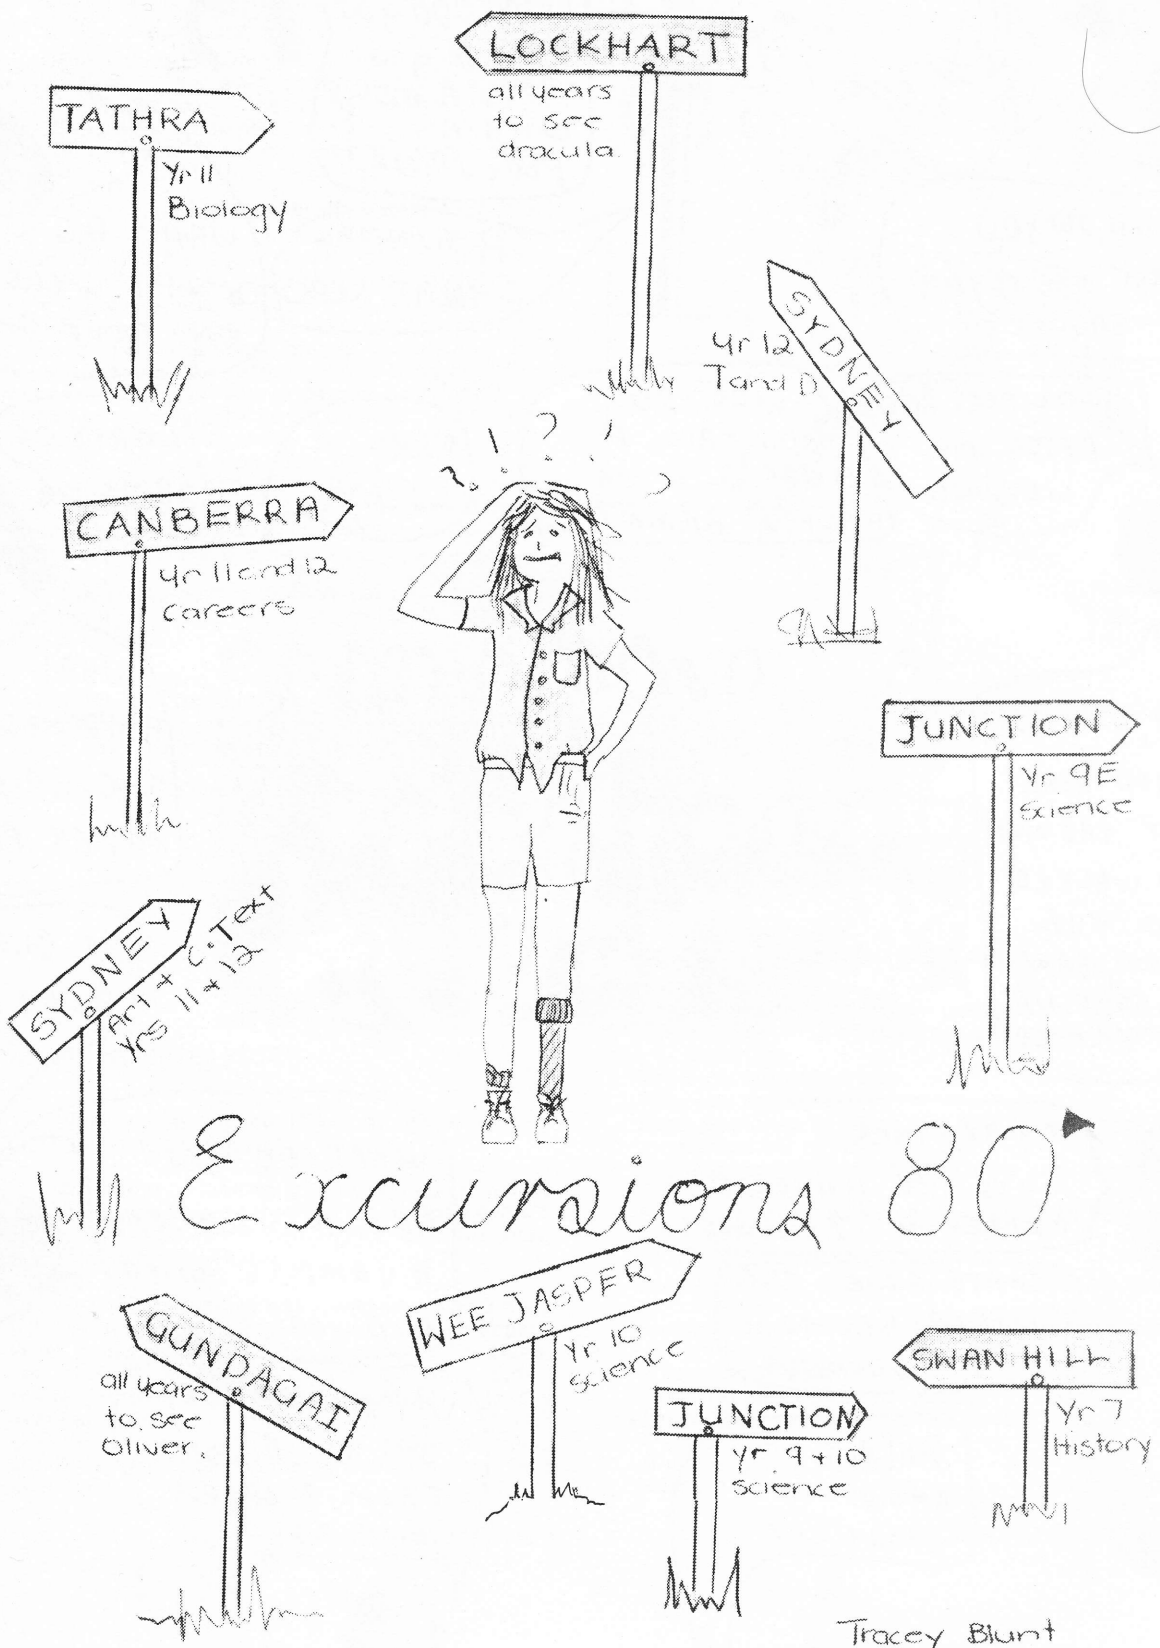 LOCKHART
all years
to see
dracula
TATHRA
Yr 11
Biology
SYDNEY
Yr 12
T and D
? ! ? !
CANBERRA
Yr 11 and 12
careers
JUNCTION
Yr 9E
science
SYDNEY
Art + C. Text
Yrs 11 + 12
Excursions 80'
GUNDAGAI
all years
to see
Oliver.
WEE JASPER
Yr 10
science
JUNCTION
Yr 9 + 10
science
SWAN HILL
Yr 7
History
Tracey Blunt